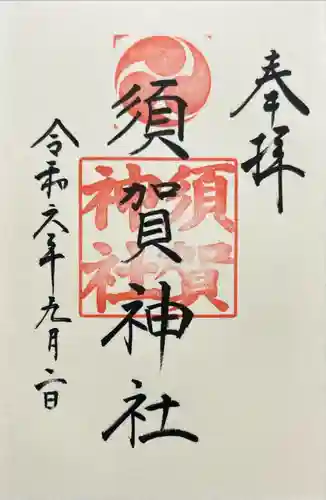 奉拝
須賀神社
須賀
神社
令和六年九月二日